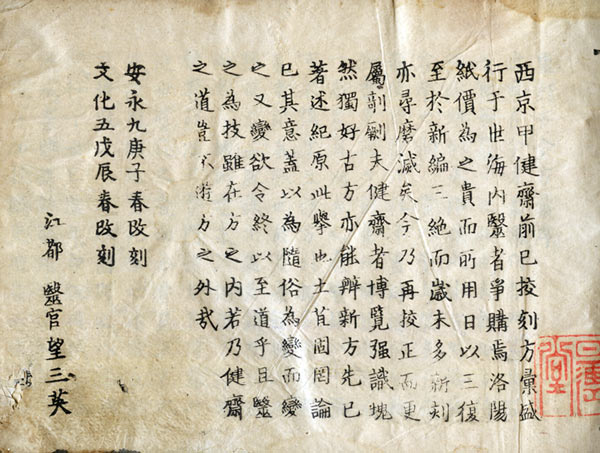 西京甲健齋前已挍刻方彙盛
行于世海内毉者爭購焉洛陽
紙價為之貴而所用日以三復
至於新編三絶而歳未多新刻
亦尋磨滅矣今乃再挍正而更
屬剞劂夫健齋者博覽强識塊
然獨好古方亦能辯新方先已
著述紀原此舉也土苴罔論
已其意蓋以為隨俗為變而變
之又變欲令終以至道乎且毉
之為技雖在方之内若乃健齋
之道豈不游方之外哉
安永九庚子春改刻
文化五戊辰春改刻
江都 毉官望三英